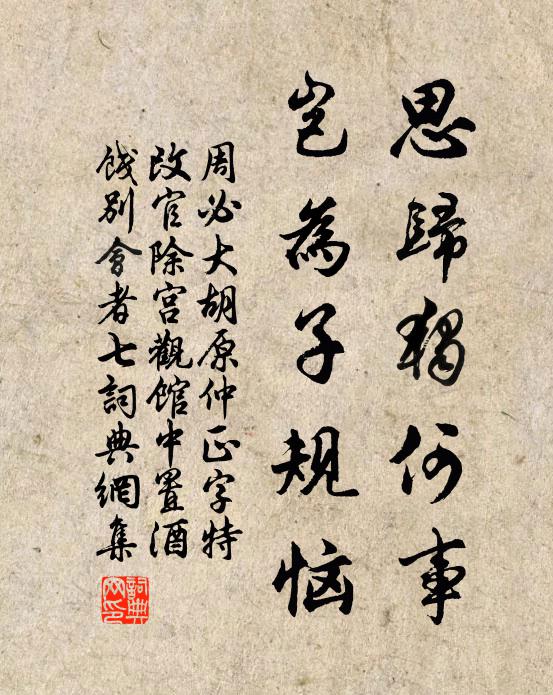 思歸獨何事
岂為子規恼
周必大胡原仲正字特
改官除宫觀館中置酒
餞別會者七詞典網集
詞典
网印